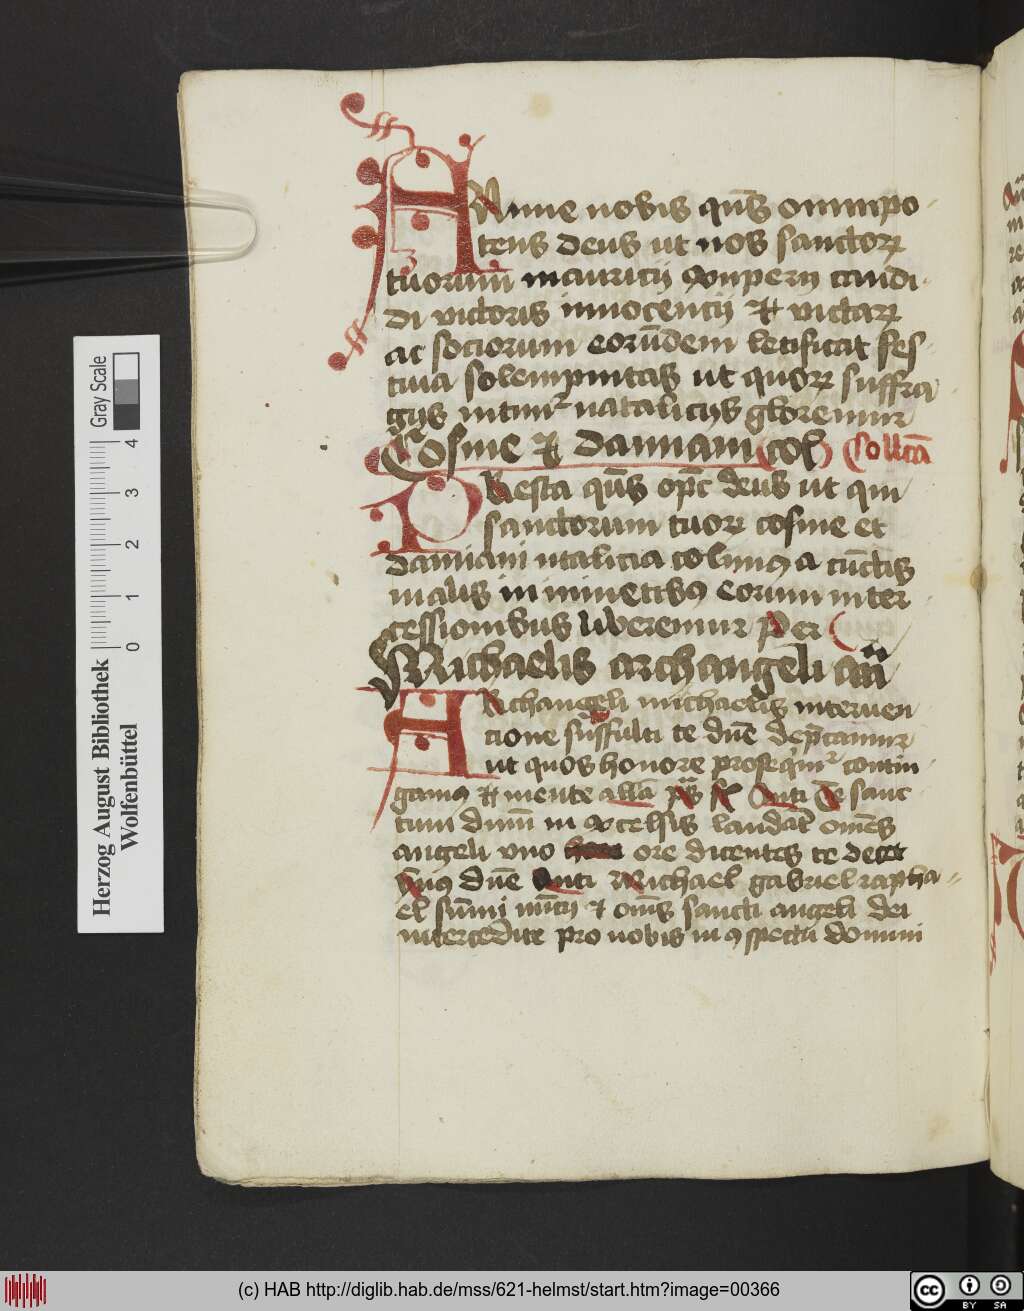 Annue nobis qūs omnipo
tens deus ut nos sanctoꝝ
tuorum mauricii exupery candi
di victoris innocencii et victaꝝ
ac sociorum eorūdem letificat fes
tiua solempnitas ut quoꝝ suffra
gys nitimr natalicys gloremur
Cosme et damiani col Collcā
Presta qūs opc deus ut qui
sanctorum tuoꝝ cosme et
damiani ntalicia colimꝰ a cūctis
malis iminētibꝰ eorum inter
cessionibus liberemur Per
Michaelis archangeli
Archangeli michaelis interuen
cione suffulti te dn̄e dep̄camur
ut quos honore proseqimr contin
gamꝰ et mente sanc
tum dnm in excelsis laudāt omēs
angeli vno ore dicentes te decet
dn̄e Anti Michael gabriel rapha
el sūmi nūcy et om̄s sancti angeli dei
intercedite pro nobis in ꝯspectu domini
Gray Scale
0 1 2 3 4
Herzog August Bibliothek
Wolfenbüttel
(c) HAB http://diglib.hab.de/mss/621-helmst/start.htm?image=00366
cc BY SA